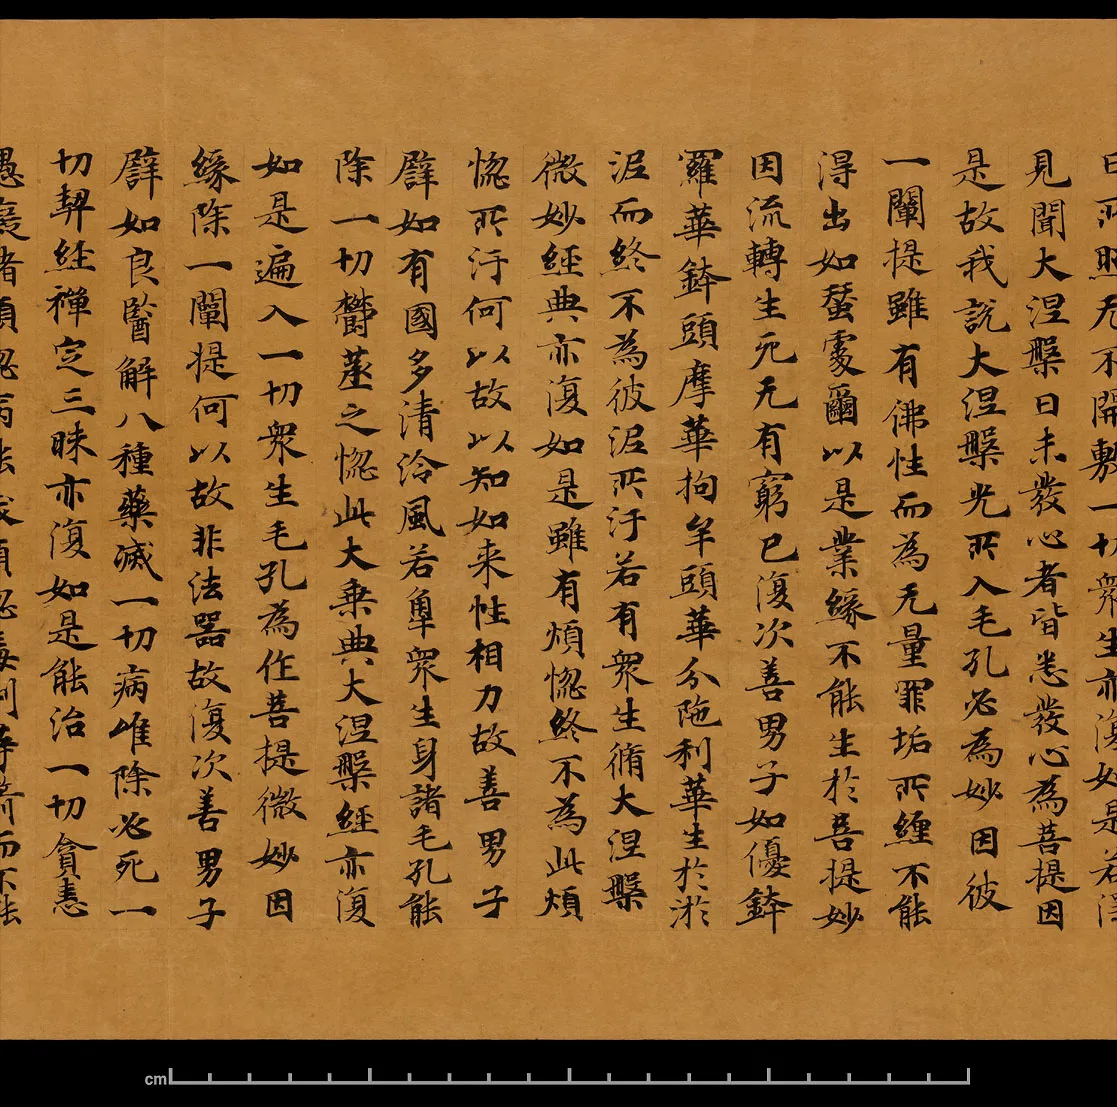 日所照无不開敷一切衆生亦復如是若得
見聞大涅槃日未發心者皆悉發心為菩提因
是故我說大涅槃光所入毛孔必為妙因彼
一闡提雖有佛性而為无量罪垢所纏不能
得出如蚕處繭以是業緣不能生於菩提妙
因流轉生死无有窮已復次善男子如優鉢
羅華鉢頭摩華拘牟頭華分陁利華生於淤
泥而終不為彼泥所汙若有衆生脩大涅槃
微妙經典亦復如是雖有煩惱終不為此煩
惱所汙何以故以知如来性相力故善男子
譬如有國多清冷風若觸衆生身諸毛孔能
除一切欝蒸之惱此大乗典大涅槃經亦復
如是遍入一切衆生毛孔為作菩提微妙因
緣除一闡提何以故非法器故復次善男子
譬如良醫解八種藥滅一切病唯除必死一
切契經禪定三昧亦復如是能治一切貪恚
愚癡諸煩惱病能拔煩惱毒刺等箭而不能
cm